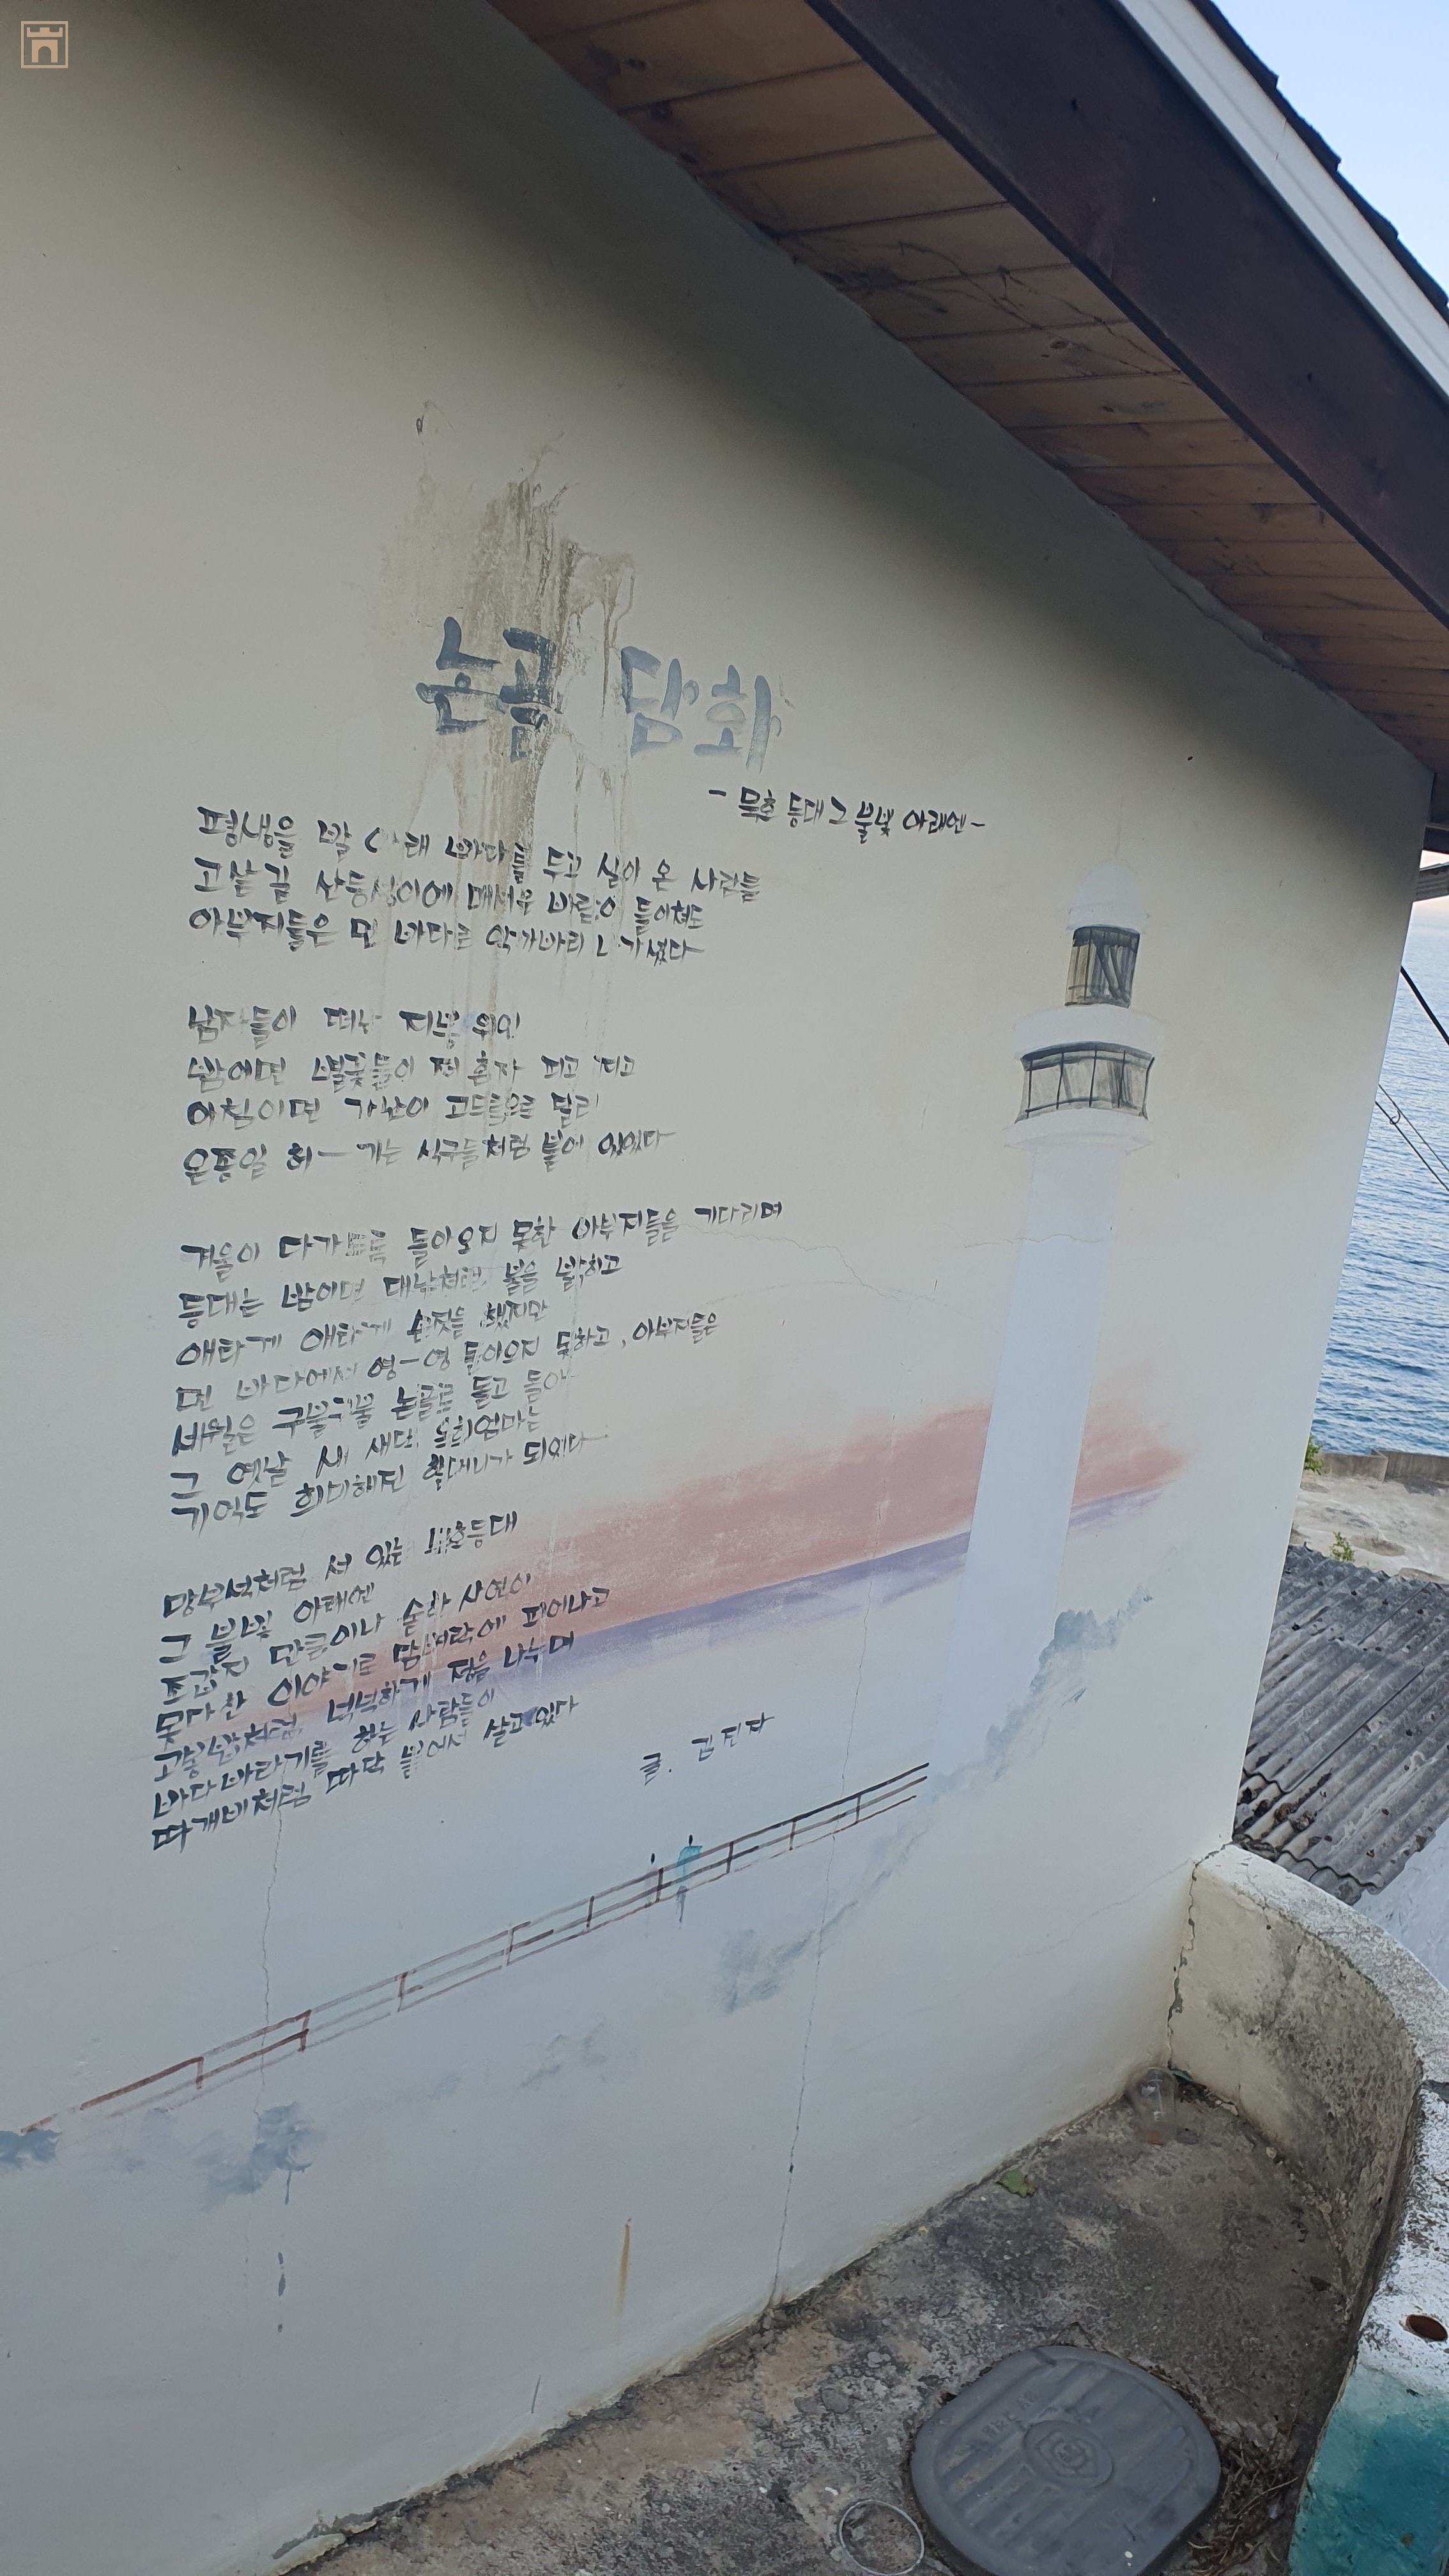 논골 담화
- 묵호 등대 그 불빛 아래엔 -
평생을 발 아래 바다를 두고 살아 온 사람들
고샅길 산등성이에 매서운 바람이 들이쳐도
아부지들은 먼 바다로 악가바리 나가셨다
남자들이 떠난 지붕 위엔
밤에면 별꽃들이 저 혼자 피고 지고
아침이면 가난이 고드름으로 달려
온종일 허一기는 식구들처럼 붙어 있었다
겨울이 다가도록 돌아오지 못한 아부지들을 기다리며
등대는 밤이면 대낮처럼 불을 밝히고
애타게 애타게 손짓을 했지만
먼 바다에서 영一영 돌아오지 못하고, 아부지들은
세월은 구불구불 논골로 돌고 돌아
그 옛날 새 새댁 옥희엄마는
기억도 희미해진 할머니가 되었다
망부석처럼 서 있는 묵호등대
그 불빛 아래엔
조갑지 만큼이나 숱한 사연이
못다한 이야기로 담벼락에 피어나고
고봉밥처럼 넉넉하게 정을 나누며
바다바라기를 하는 사람들이
따개비처럼 따닥 붙어서 살고있다
글. 김진자